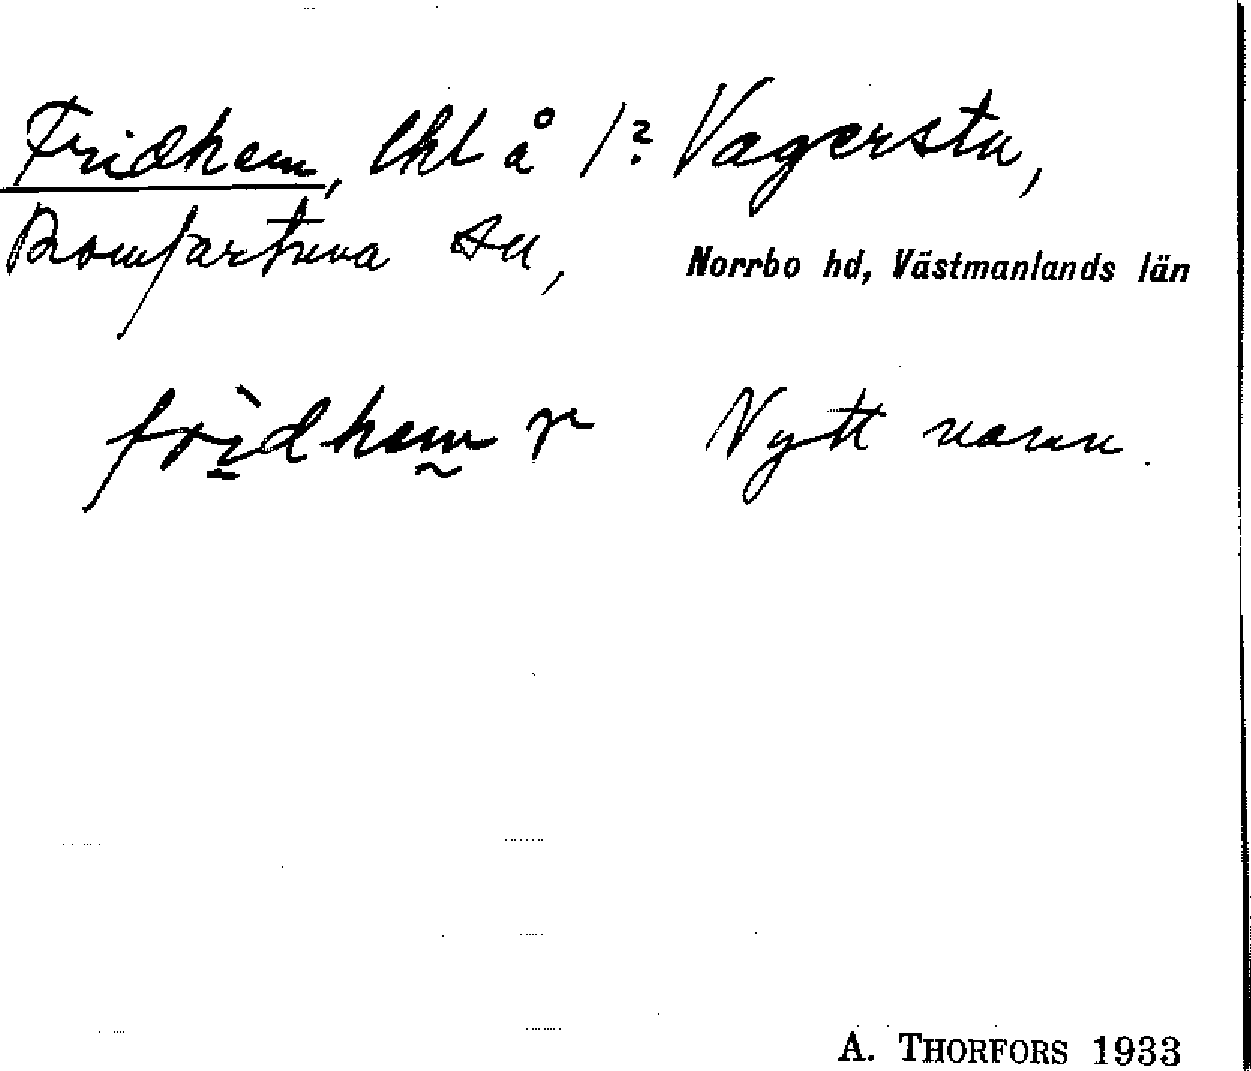 Fridhem, lht å 1/2 Vagersta,
Romfartuna sn,
Norrbo hd, Västmanlands län
frìdhem r Nytt namn.
A. THORFORS 1933